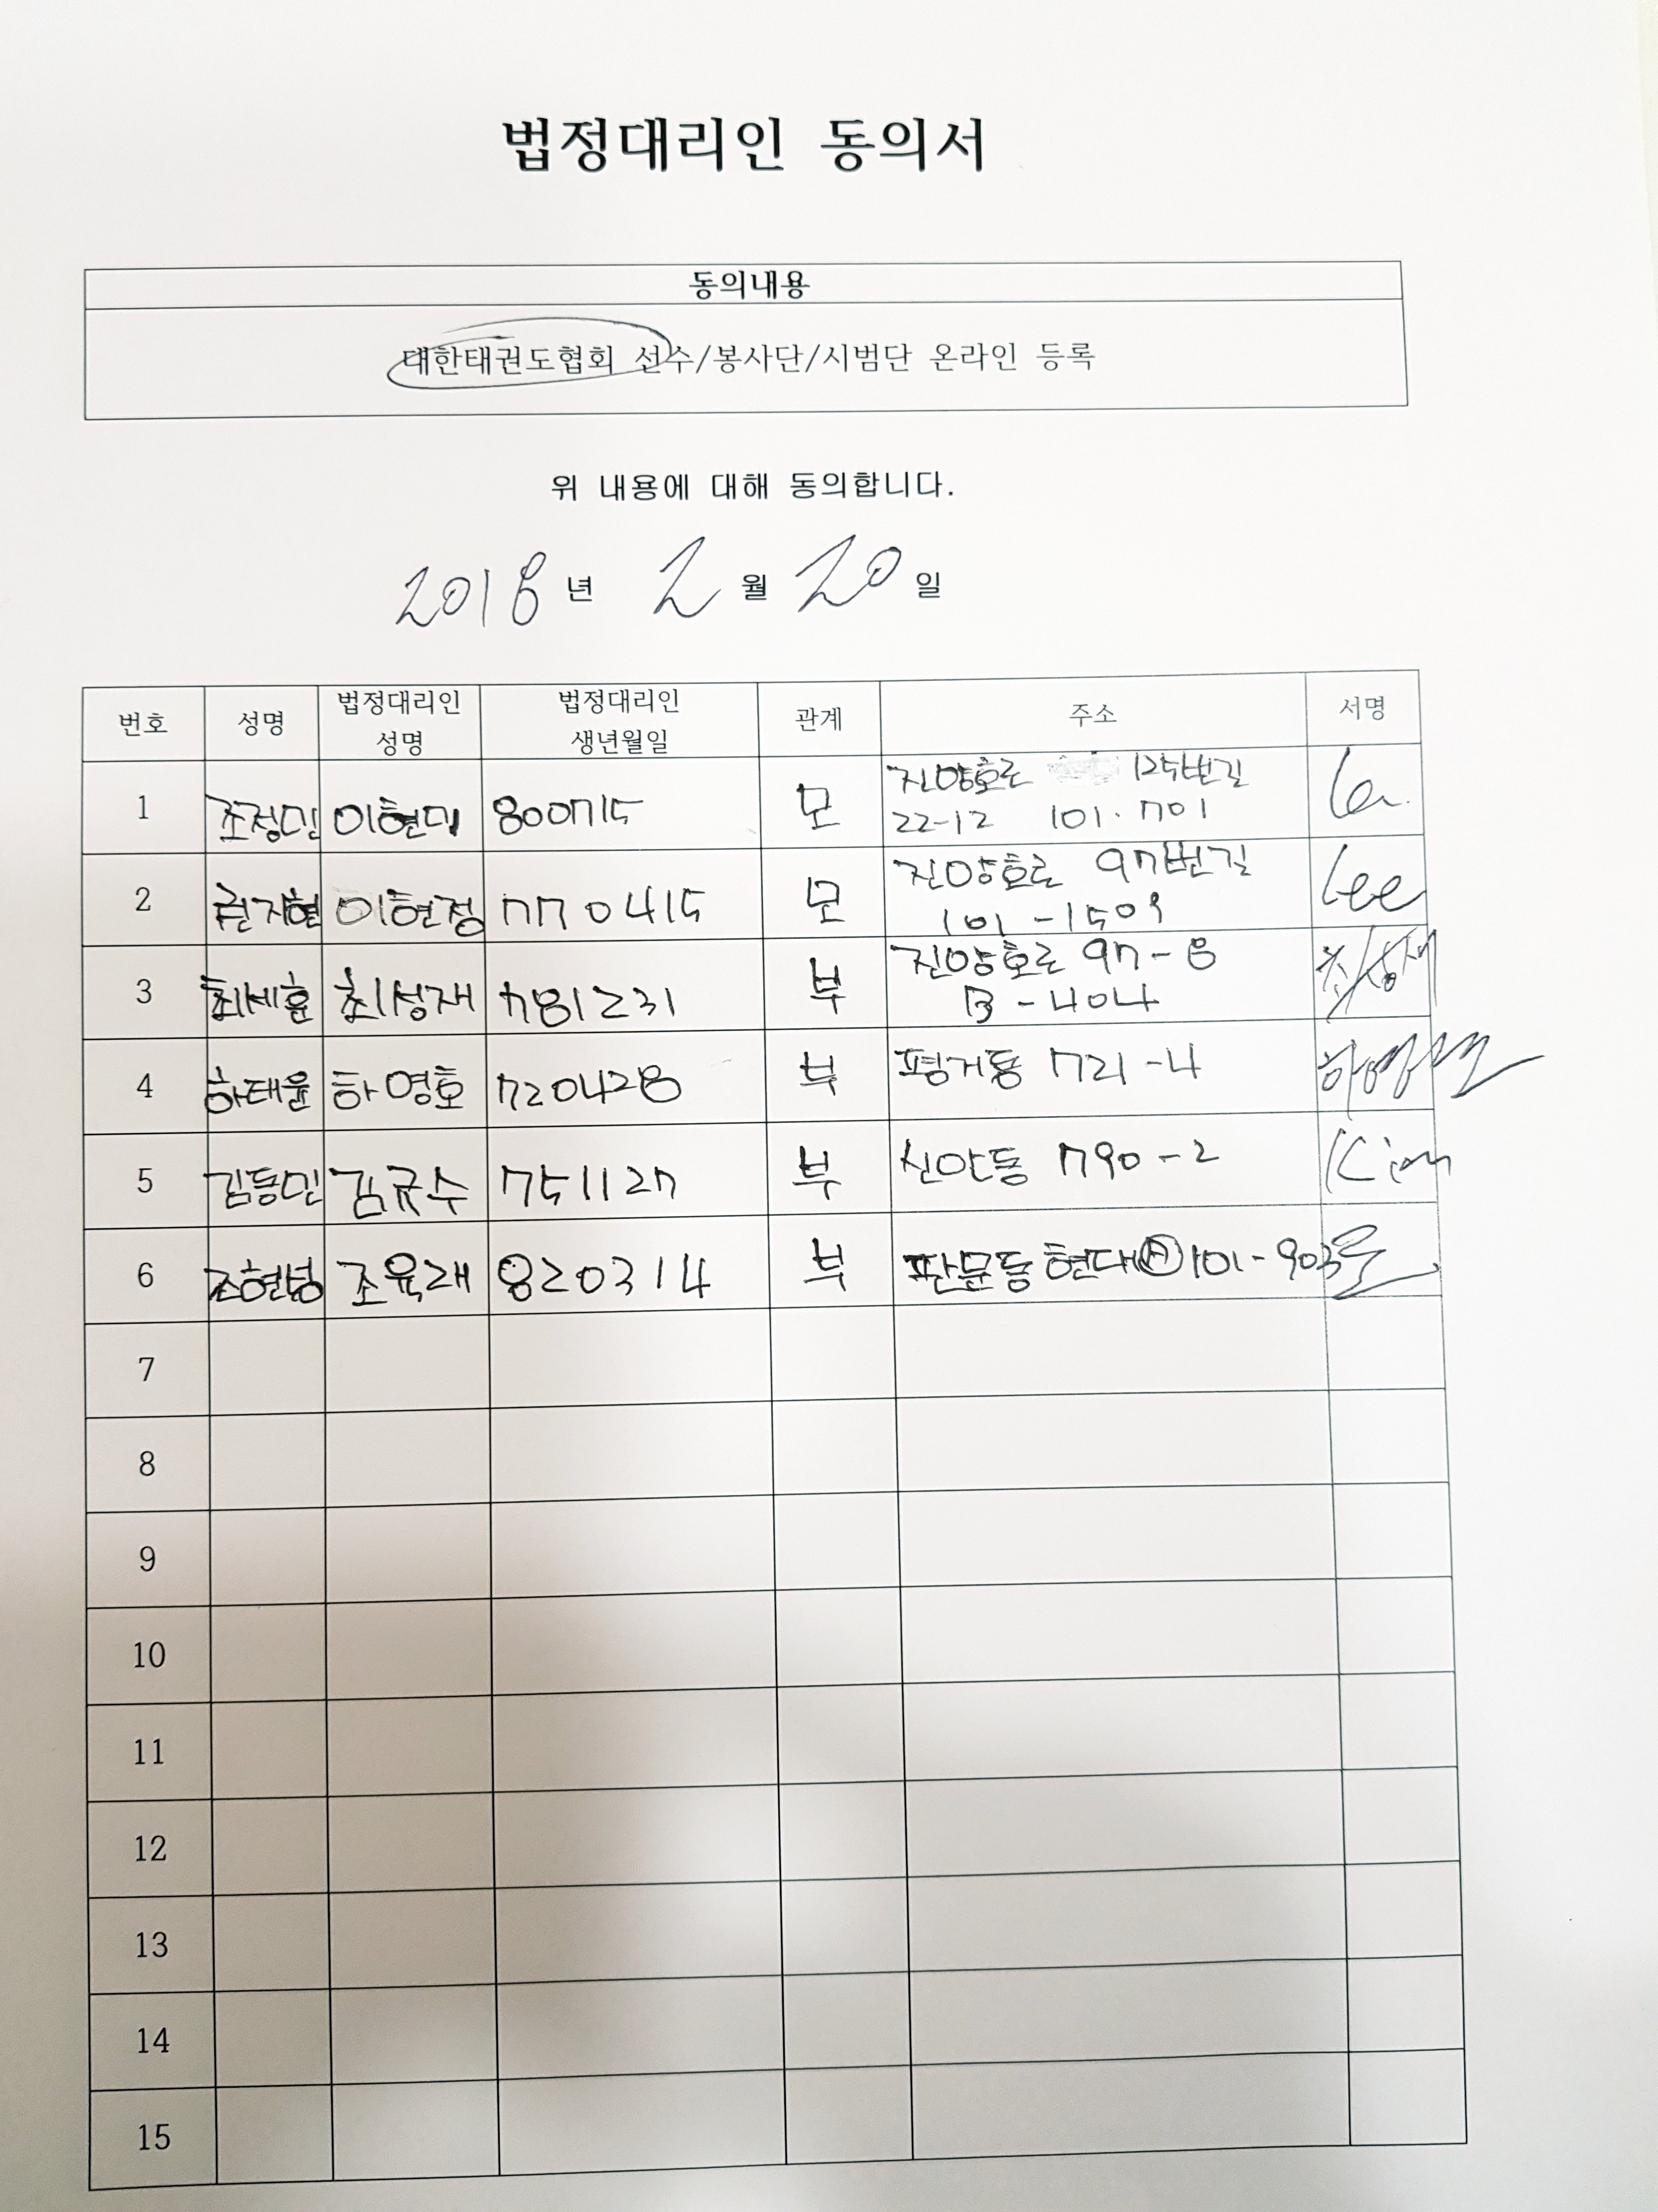 법정대리인 동의서
동의내용
대한태권도협회 선수/봉사단/시범단 온라인 등록
위 내용에 대해 동의합니다.
2018년 2월 20일
번호 성명 법정대리인 성명 법정대리인 생년월일 관계 주소 서명
1 조정민 이현미 800715 모 진양호로 125번길
22-12 101.701
2 권지현 이현정 770415 모 진양호로 97번길 Lee
101-1509
3 최세훈 최성재 781231 부 진양호로 97-8 최성재
B-404
4 하태윤 하영호 720428 부 평거동 721-4
5 김동민 김규수 751127 부 신안동 790-2 Kim
6 조현성 조육래 820314 부 판문동 현대Ⓐ101-903
7
8
9
10
11
12
13
14
15